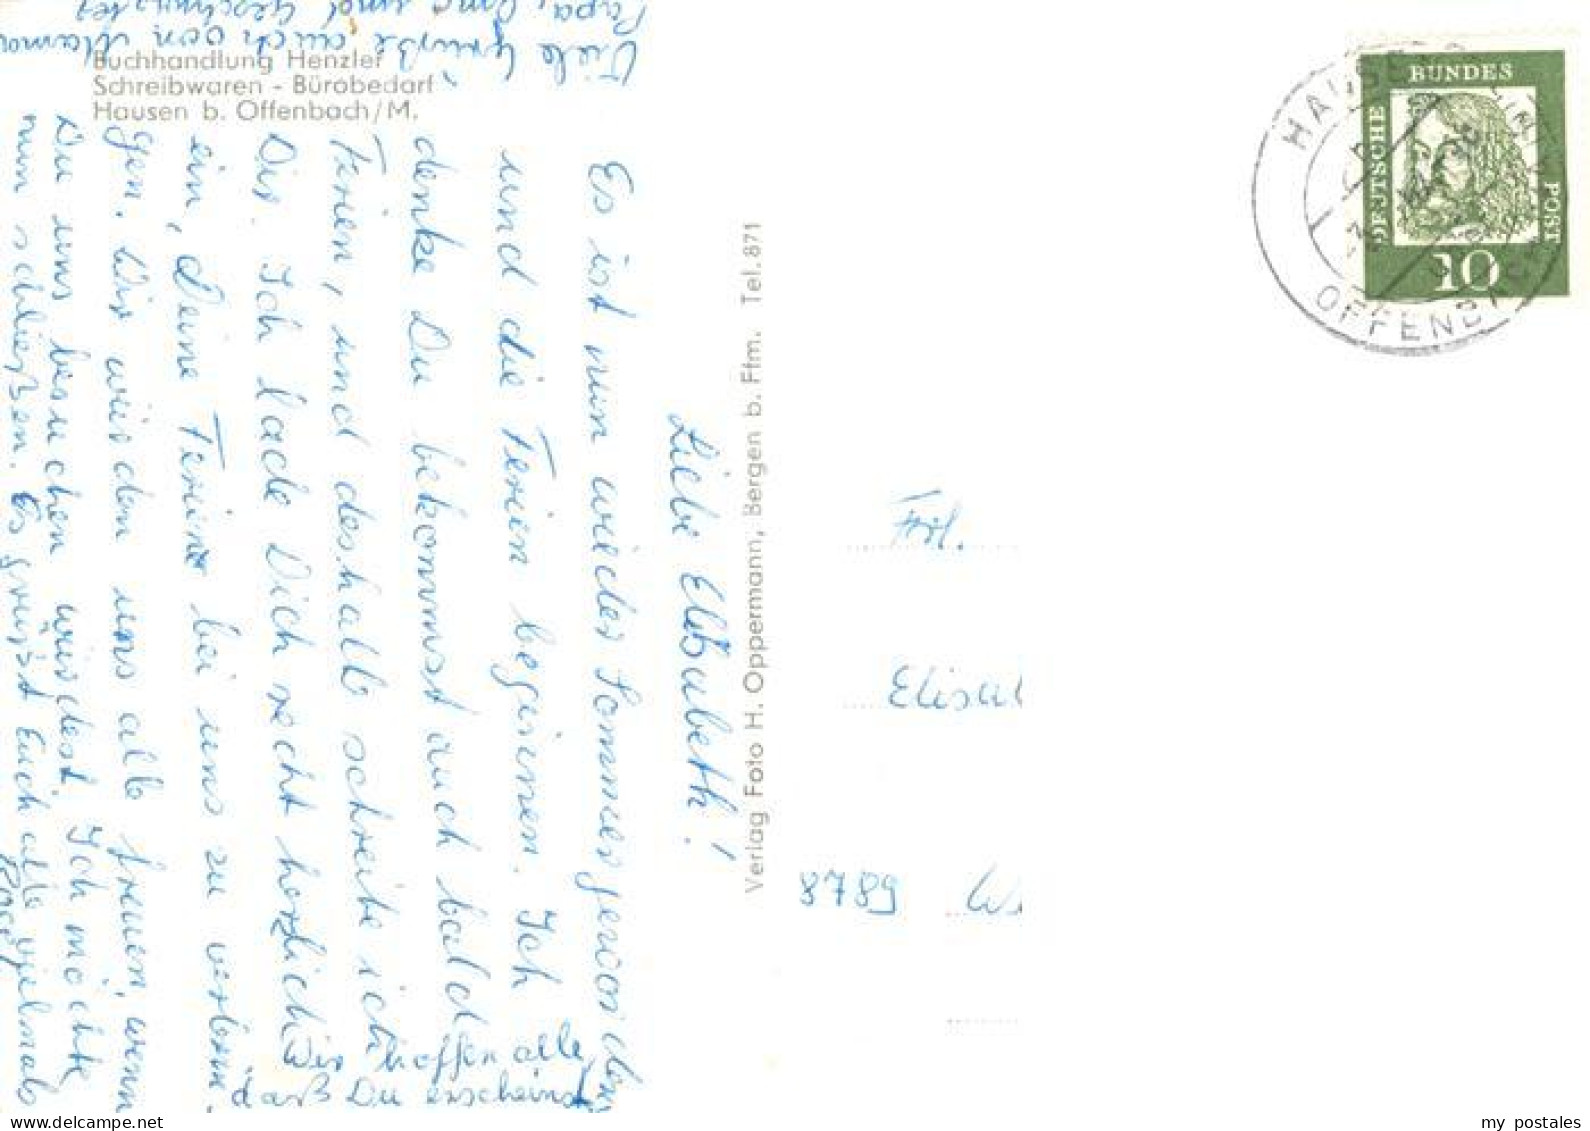 Buchhandlung Henzler
Schreibwaren - Bürobedarf
Hausen b. Offenbach/M.
Liebe Elisabeth!
Es ist nun wieder Sommer geworden
und die Ferien beginnen. Ich
denke Du bekommst auch bald
Ferien, und deshalb schreibe ich
Dir. Ich lade Dich recht herzlich
ein, Deine Ferien bei uns zu verbrin
gen. Wir würden uns alle freuen, wenn
Du uns besuchen würdest. Ich möchte
nun schließen. Es grüßt Euch alle vielmals
Viele Grüße auch von Mama
Papa, Oma und Geschwister
Wir hoffen alle,
daß Du erscheinst
Verlag Foto H. Oppermann, Bergen b. Ffm. Tel. 871
Frl.
Elisab
8789 W
DEUTSCHE
BUNDES
POST
10
HAUSEN
OFFENBACH
my postales